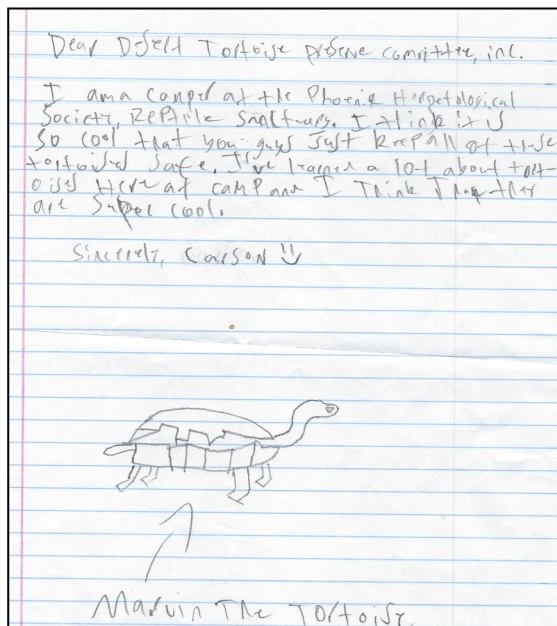 Dear Desert Tortoise preserve committee, inc.
I am a camper at the Phoenix Herpetological
Society, Reptile Sanctuary. I think it is
so cool that you guys just keep all of these
tortoises safe. I've learned a lot about tort-
oises Here at camp and I Think that they
are super cool.
Sincerely, Carson
Marvin The Tortoise